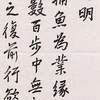 明
捕魚為業緣
數百步中無
之復前行欲